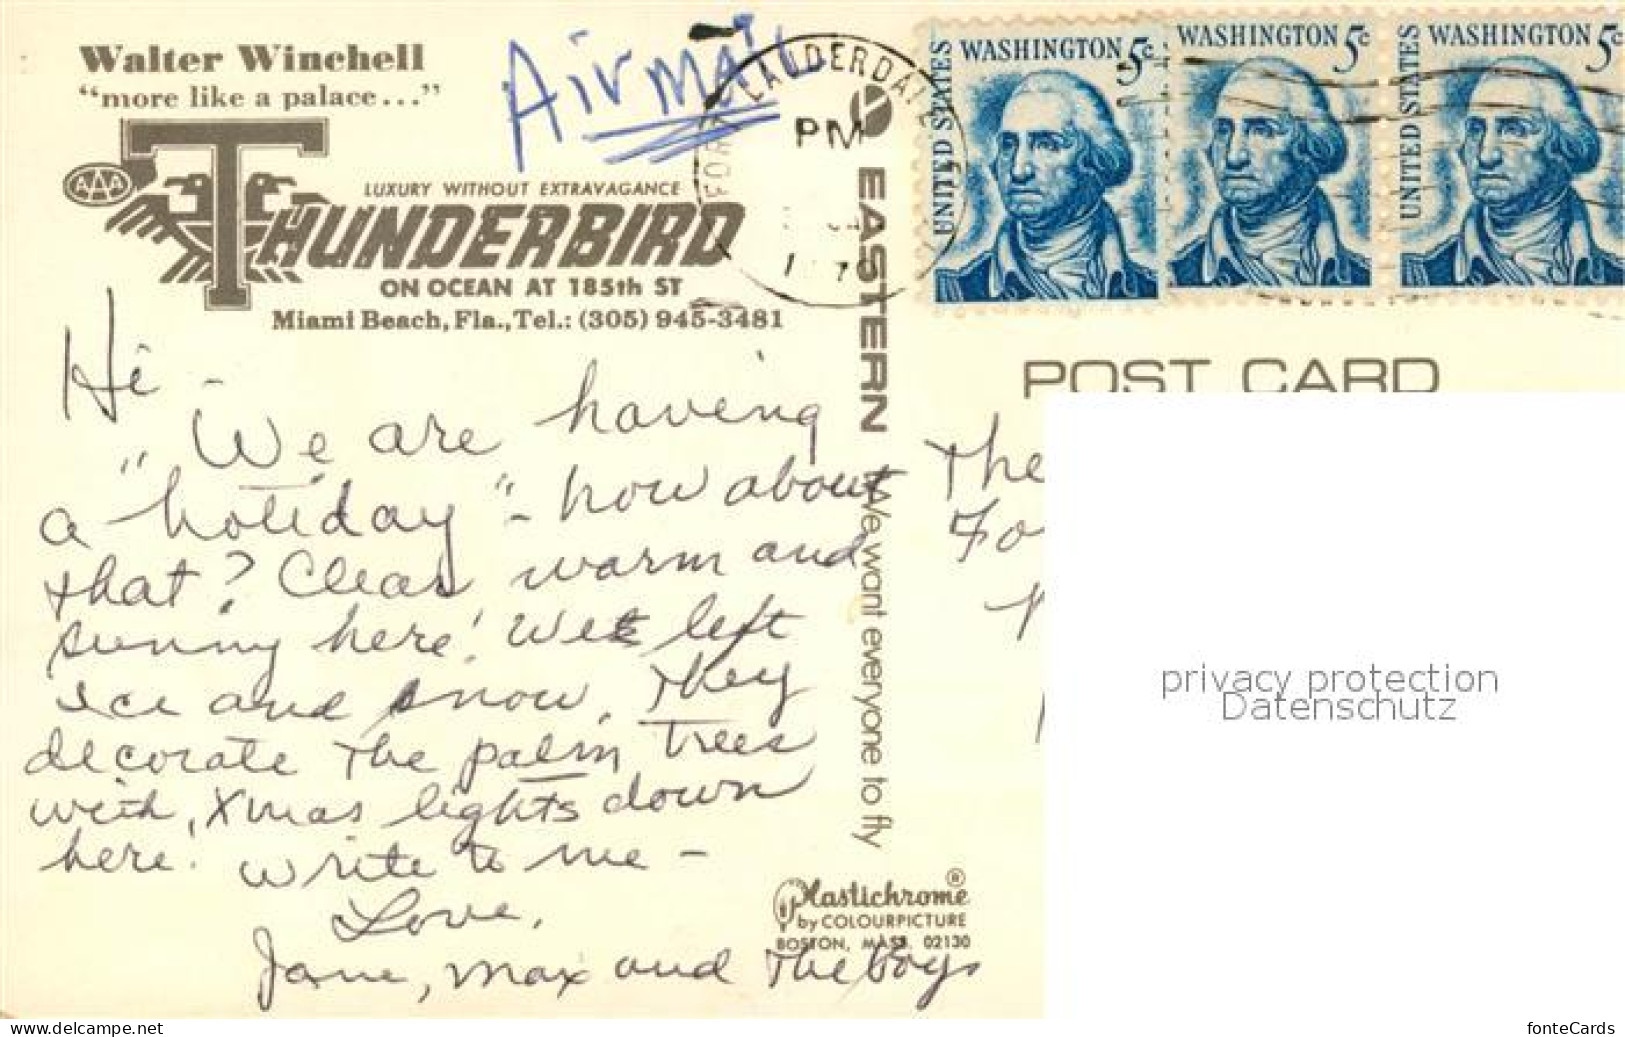 Walter Winchell
“more like a palace...”
AAA
LUXURY WITHOUT EXTRAVAGANCE
THUNDERBIRD
ON OCEAN AT 185th ST
Miami Beach, Fla., Tel.: (305) 945-3481
Airmail
LAUDERDALE
PM
EASTERN We want everyone to fly
UNITED STATES WASHINGTON 5c
WASHINGTON 5c
UNITED STATES WASHINGTON 5c
POST CARD
Hi -
"We are having
a "holiday" - how about
that? Clear warm and
sunny here! We left
ice and snow. They
decorate the palm trees
with Xmas lights down
here! Write to me -
Love,
Jane, Max and the boys
The
Plastichrome®
by COLOURPICTURE
BOSTON, MASS. 02130
privacy protection
Datenschutz
www.delcampe.net
fonteCards